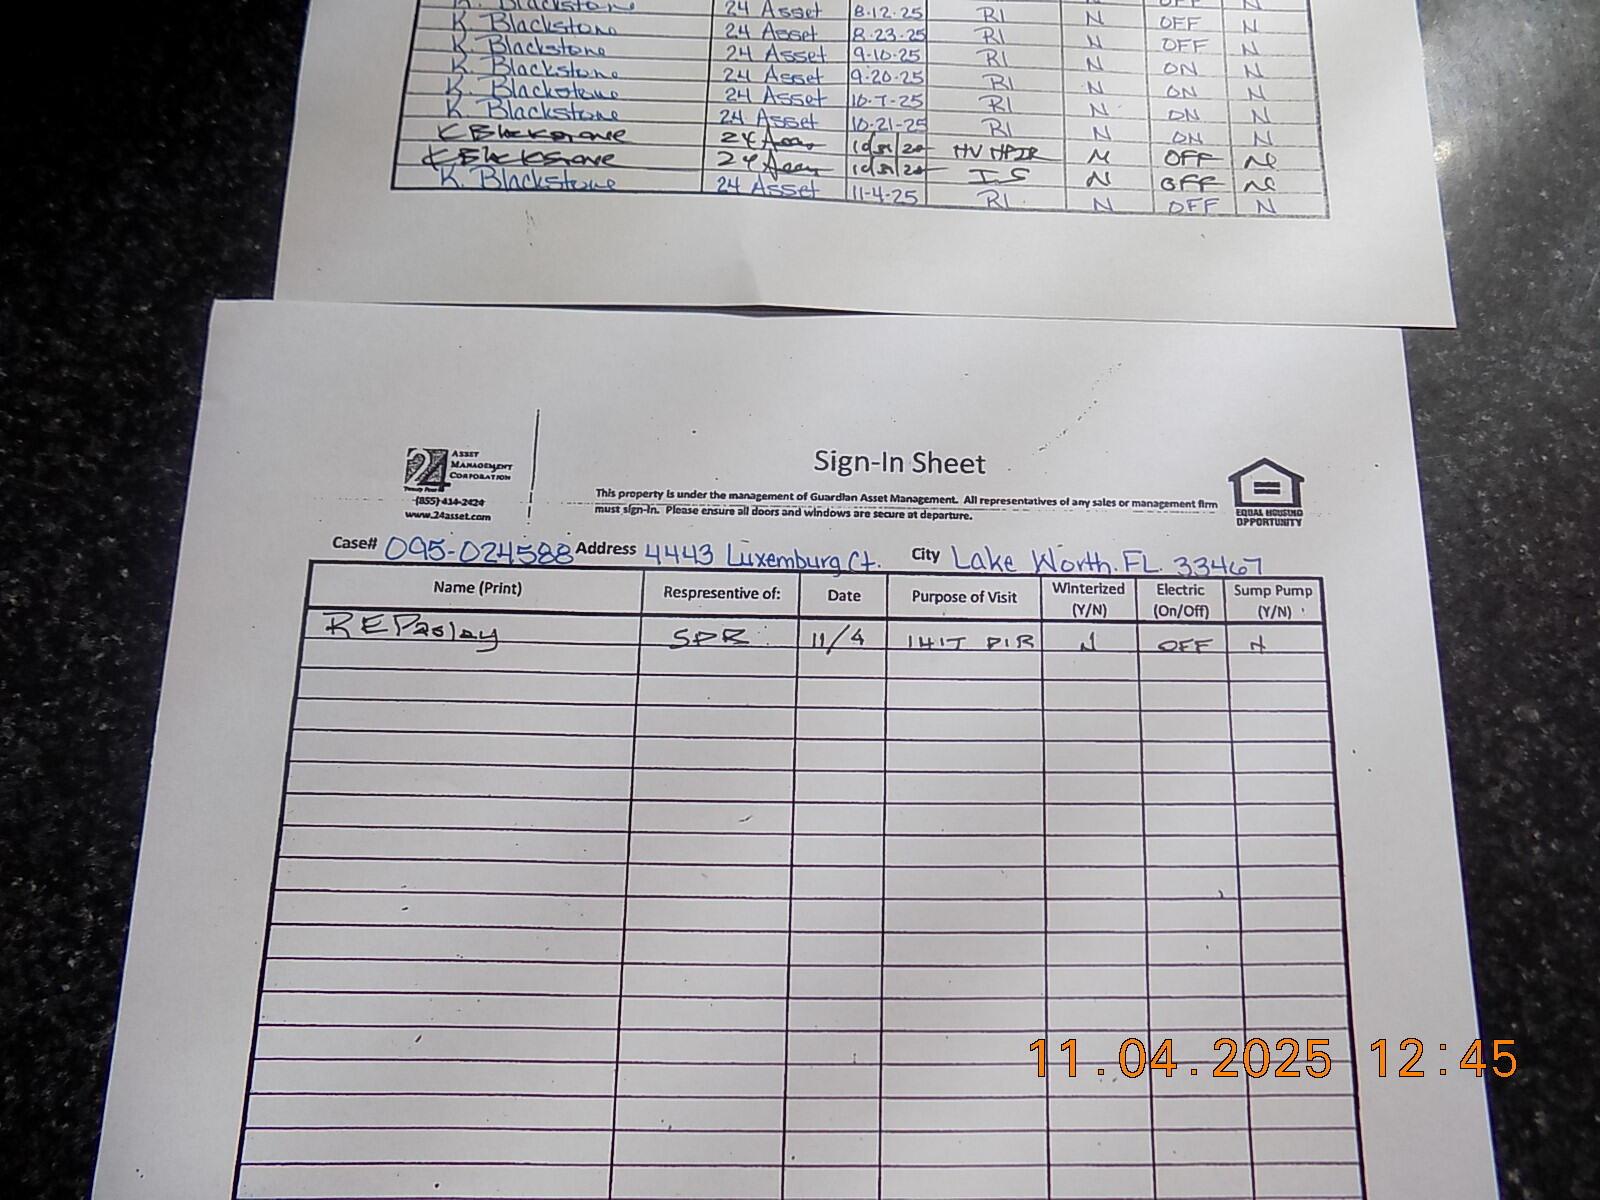 K. Blackstone 24 Asset 8.12.25 RI N OFF N
K. Blackstone 24 Asset 8.23.25 RI N OFF N
K. Blackstone 24 Asset 9.10.25 RI N ON N
K. Blackstone 24 Asset 9.20.25 RI N ON N
K. Blackstone 24 Asset 10.7.25 RI N ON N
K. Blackstone 24 Asset 10.21.25 RI N ON N
K Blackstone 24 HV HPIR N OFF
K Blackstone 24 IS N OFF
K. Blackstone 24 Asset 11-4-25 RI N OFF N
24 ASSET MANAGEMENT CORPORATION
Twenty Four
(855) 414-2424
www.24asset.com
Sign-In Sheet
This property is under the management of Guardian Asset Management. All representatives of any sales or management firm
must sign-in. Please ensure all doors and windows are secure at departure.
EQUAL HOUSING
OPPORTUNITY
Case# 095-024588 Address 4443 Luxemburg Ct. City Lake Worth. FL. 33467
Name (Print) Respresentive of: Date Purpose of Visit Winterized (Y/N) Electric (On/Off) Sump Pump (Y/N)
R E Paslay SPR 11/4 INIT PIR N OFF N
11.04.2025 12:45